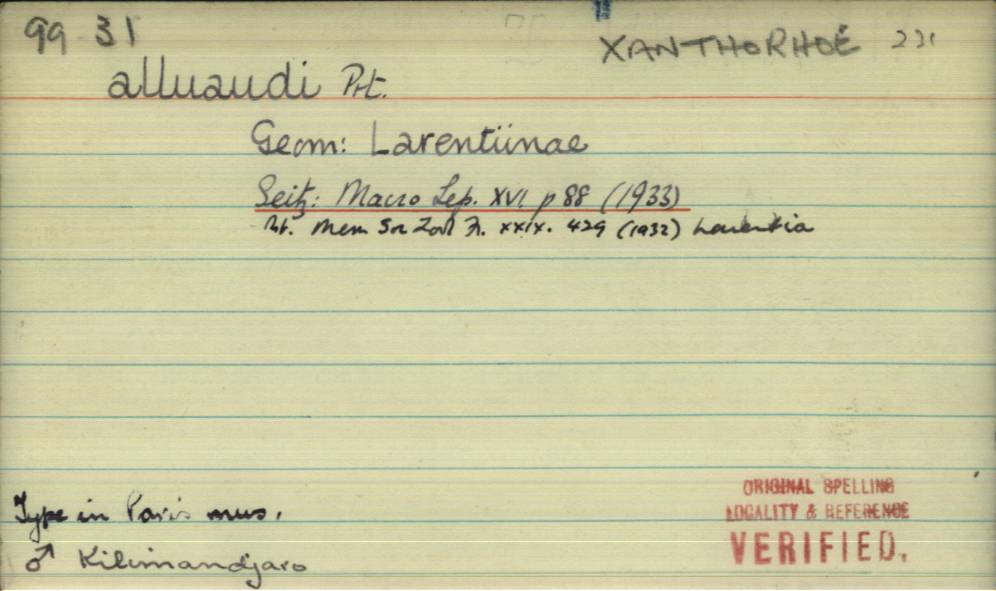 99 31
XANTHORHOË 231
alluaudi Prt.
Geom: Larentiinae
Seitz: Macro Lep. XVI p 88 (1933)
Prt. Mem Soc Zool Fr. XXIX. 429 (1932) Larentia
Type in Paris mus.
♂ Kilimandjaro
ORIGINAL SPELLING
LOCALITY & REFERENCE
VERIFIED.